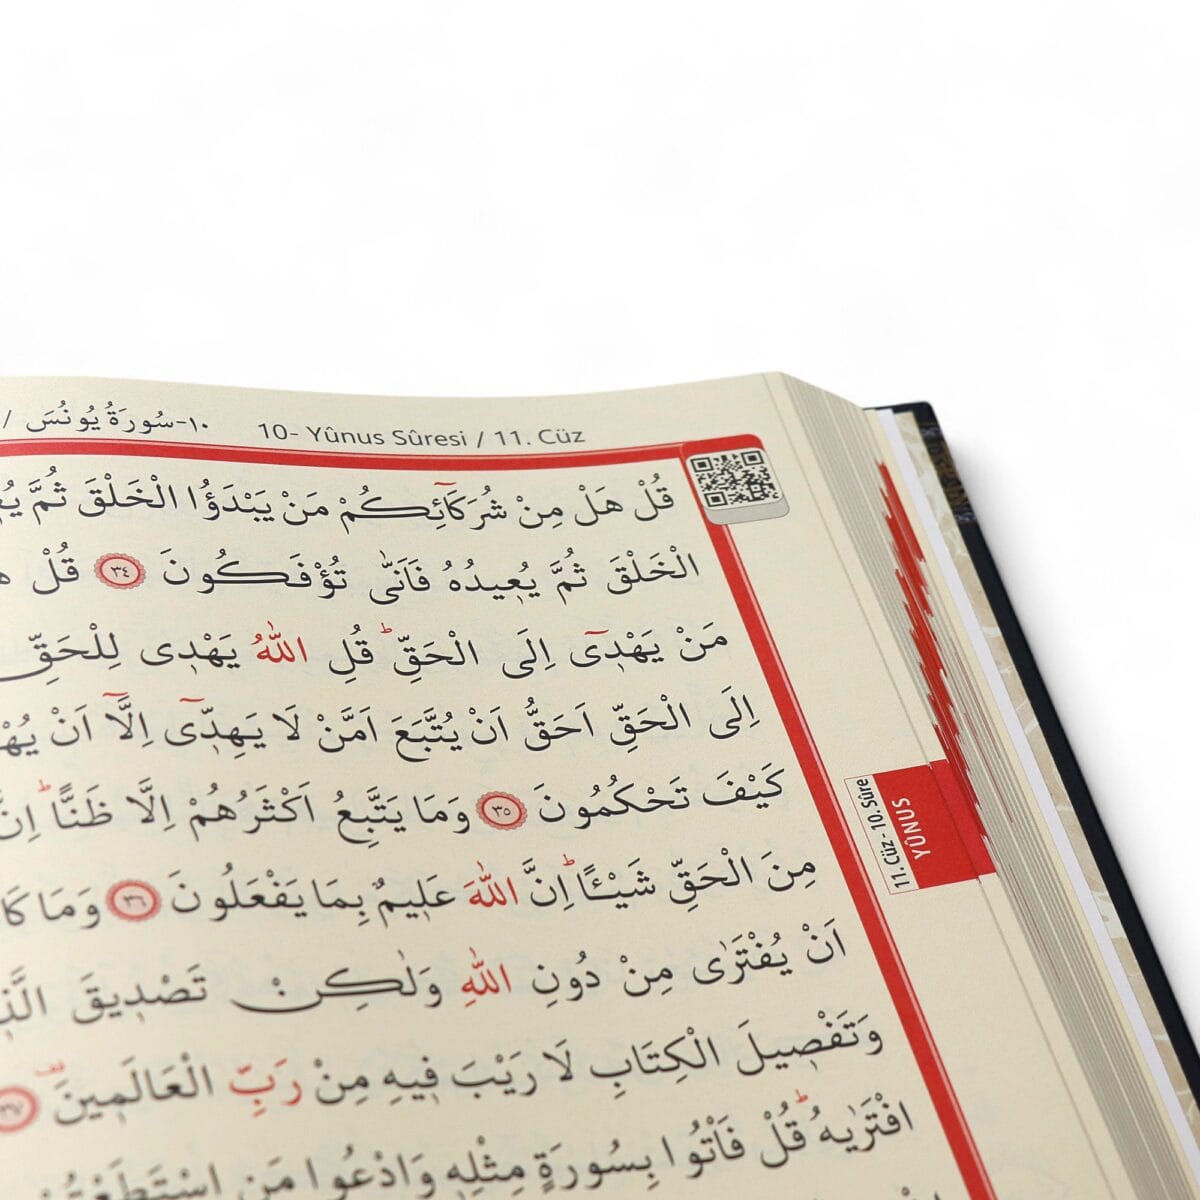 ١٠-سُورَةُ يُونُسَ /
10- Yûnus Sûresi / 11. Cüz
قُلْ هَلْ مِنْ شُرَكَٓائِكُمْ مَنْ يَبْدَؤُا الْخَلْقَ ثُمَّ
الْخَلْقَ ثُمَّ يُع۪يدُهُ فَاَنّٰى تُؤْفَكُونَ ﴿٣٤﴾ قُلْ
مَنْ يَهْد۪ٓي اِلَى الْحَقِّۜ قُلِ اللّٰهُ يَهْد۪ي لِلْحَقِّ
اِلَى الْحَقِّ اَحَقُّ اَنْ يُتَّبَعَ اَمَّنْ لَا يَهِدّ۪ٓي اِلَّٓا اَنْ
كَيْفَ تَحْكُمُونَ ﴿٣٥﴾ وَمَا يَتَّبِعُ اَكْثَرُهُمْ اِلَّا ظَنًّاۜ
مِنَ الْحَقِّ شَيْـًٔاۜ اِنَّ اللّٰهَ عَل۪يمٌ بِمَا يَفْعَلُونَ ﴿٣٦﴾ وَمَا
اَنْ يُفْتَرٰى مِنْ دُونِ اللّٰهِ وَلٰكِنْ تَصْد۪يقَ
وَتَفْص۪يلَ الْكِتَابِ لَا رَيْبَ ف۪يهِ مِنْ رَبِّ الْعَالَم۪ينَ۠ ﴿٣٧﴾
افْتَرٰيهُۜ قُلْ فَأْتُوا بِسُورَةٍ مِثْلِه۪ وَادْعُوا مَنِ اسْتَطَعْتُمْ
11. Cüz - 10. Sûre
YÛNUS